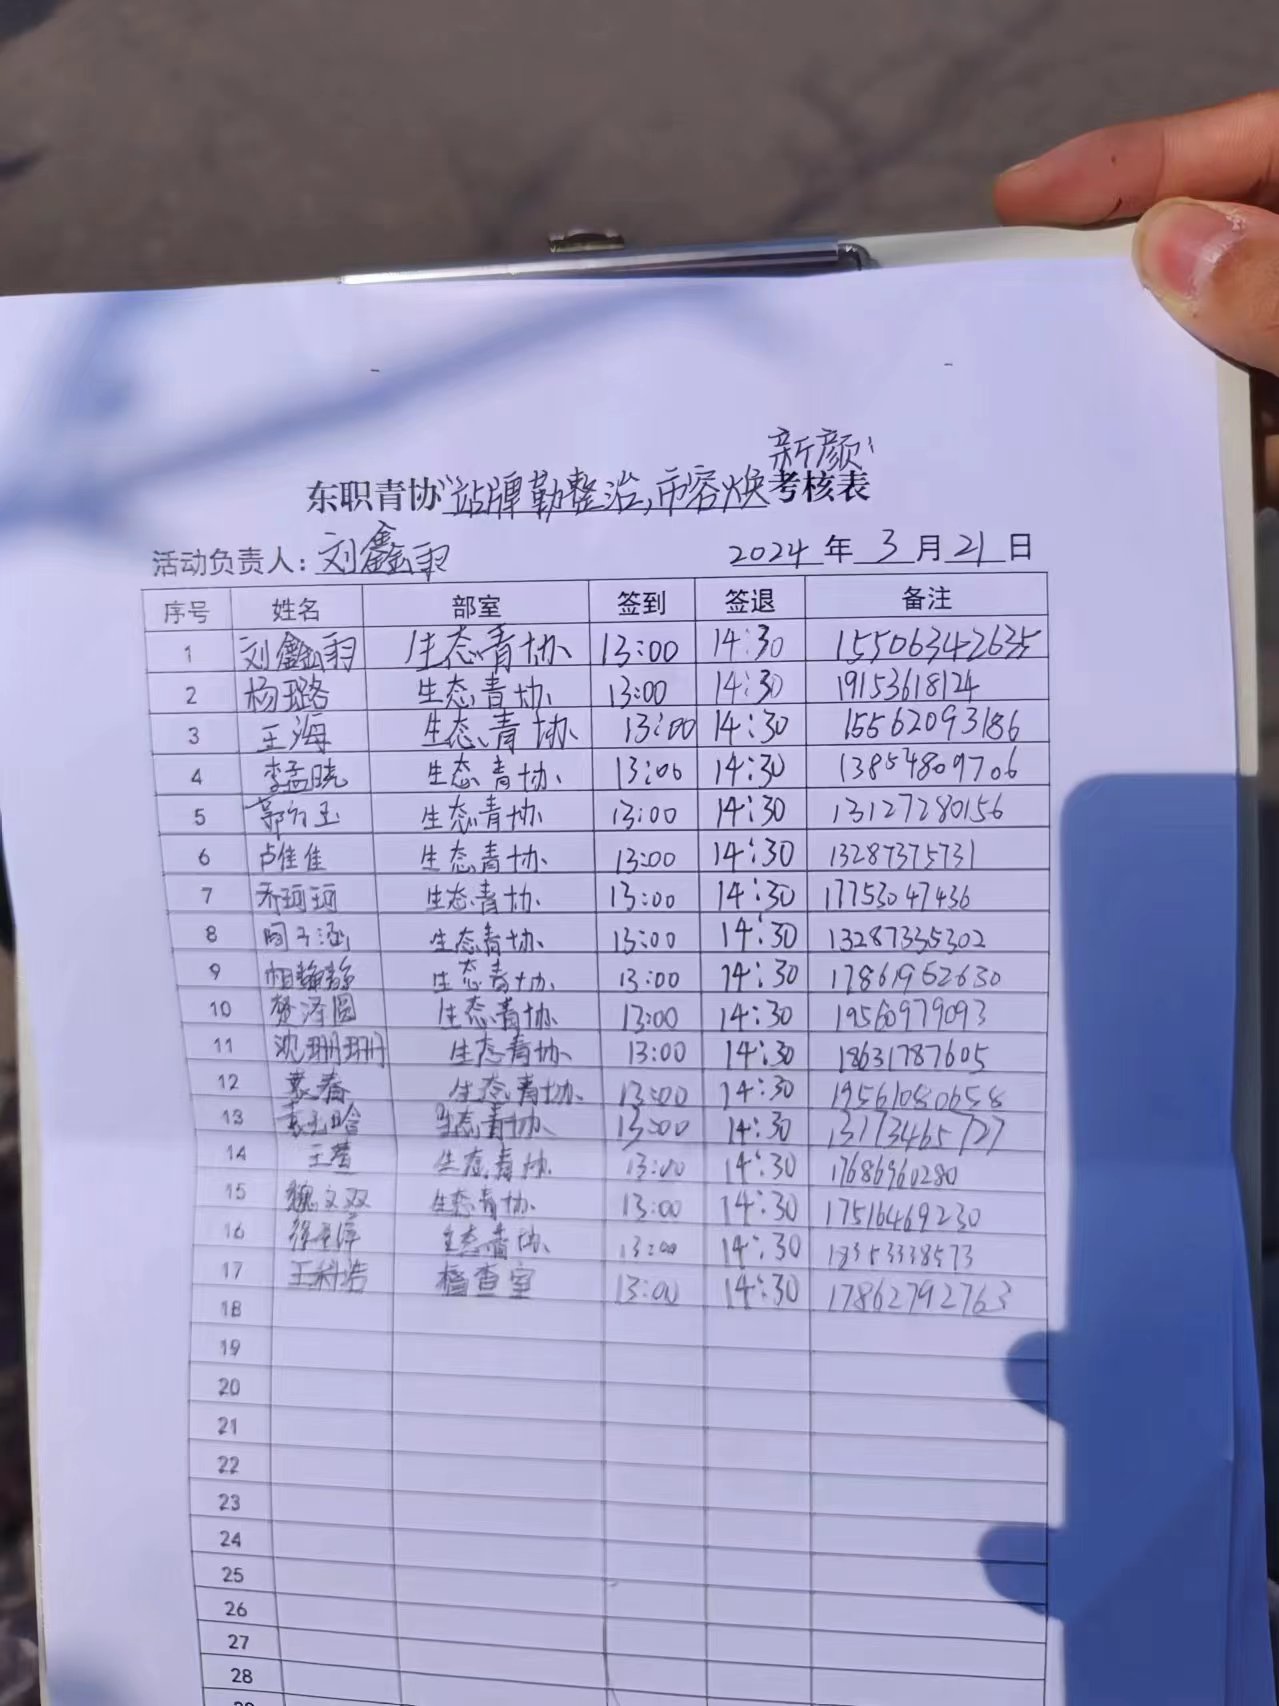 新颜"
东职青协"站牌勤整治,市容焕考核表
活动负责人:刘鑫羽 2024年3月21日
序号 姓名 部室 签到 签退 备注
1 刘鑫羽 生态青协 13:00 14:30 15506342635
2 杨璐 生态青协 13:00 14:30 19153618124
3 王海 生态青协 13:00 14:30 15562093186
4 李孟晓 生态青协 13:00 14:30 13854809706
5 生态青协 13:00 14:30 13127280156
6 卢佳佳 生态青协 13:00 14:30 13287375731
7 乔珂珂 生态青协 13:00 14:30 17753047436
8 生态青协 13:00 14:30 13287335302
9 生态青协 13:00 14:30 17861962630
10 樊泽圆 生态青协 13:00 14:30 19560979093
11 沈珊珊 生态青协 13:00 14:30 18631787605
12 袁春 生态青协 13:00 14:30 19561080658
13 生态青协 13:00 14:30 13173465727
14 生态青协 13:00 14:30 17686960280
15 魏文双 生态青协 13:00 14:30 17516469230
16 生态青协 13:00 14:30 18353338573
17 王科浩 检查室 13:00 14:30 17862792763
18
19
20
21
22
23
24
25
26
27
28